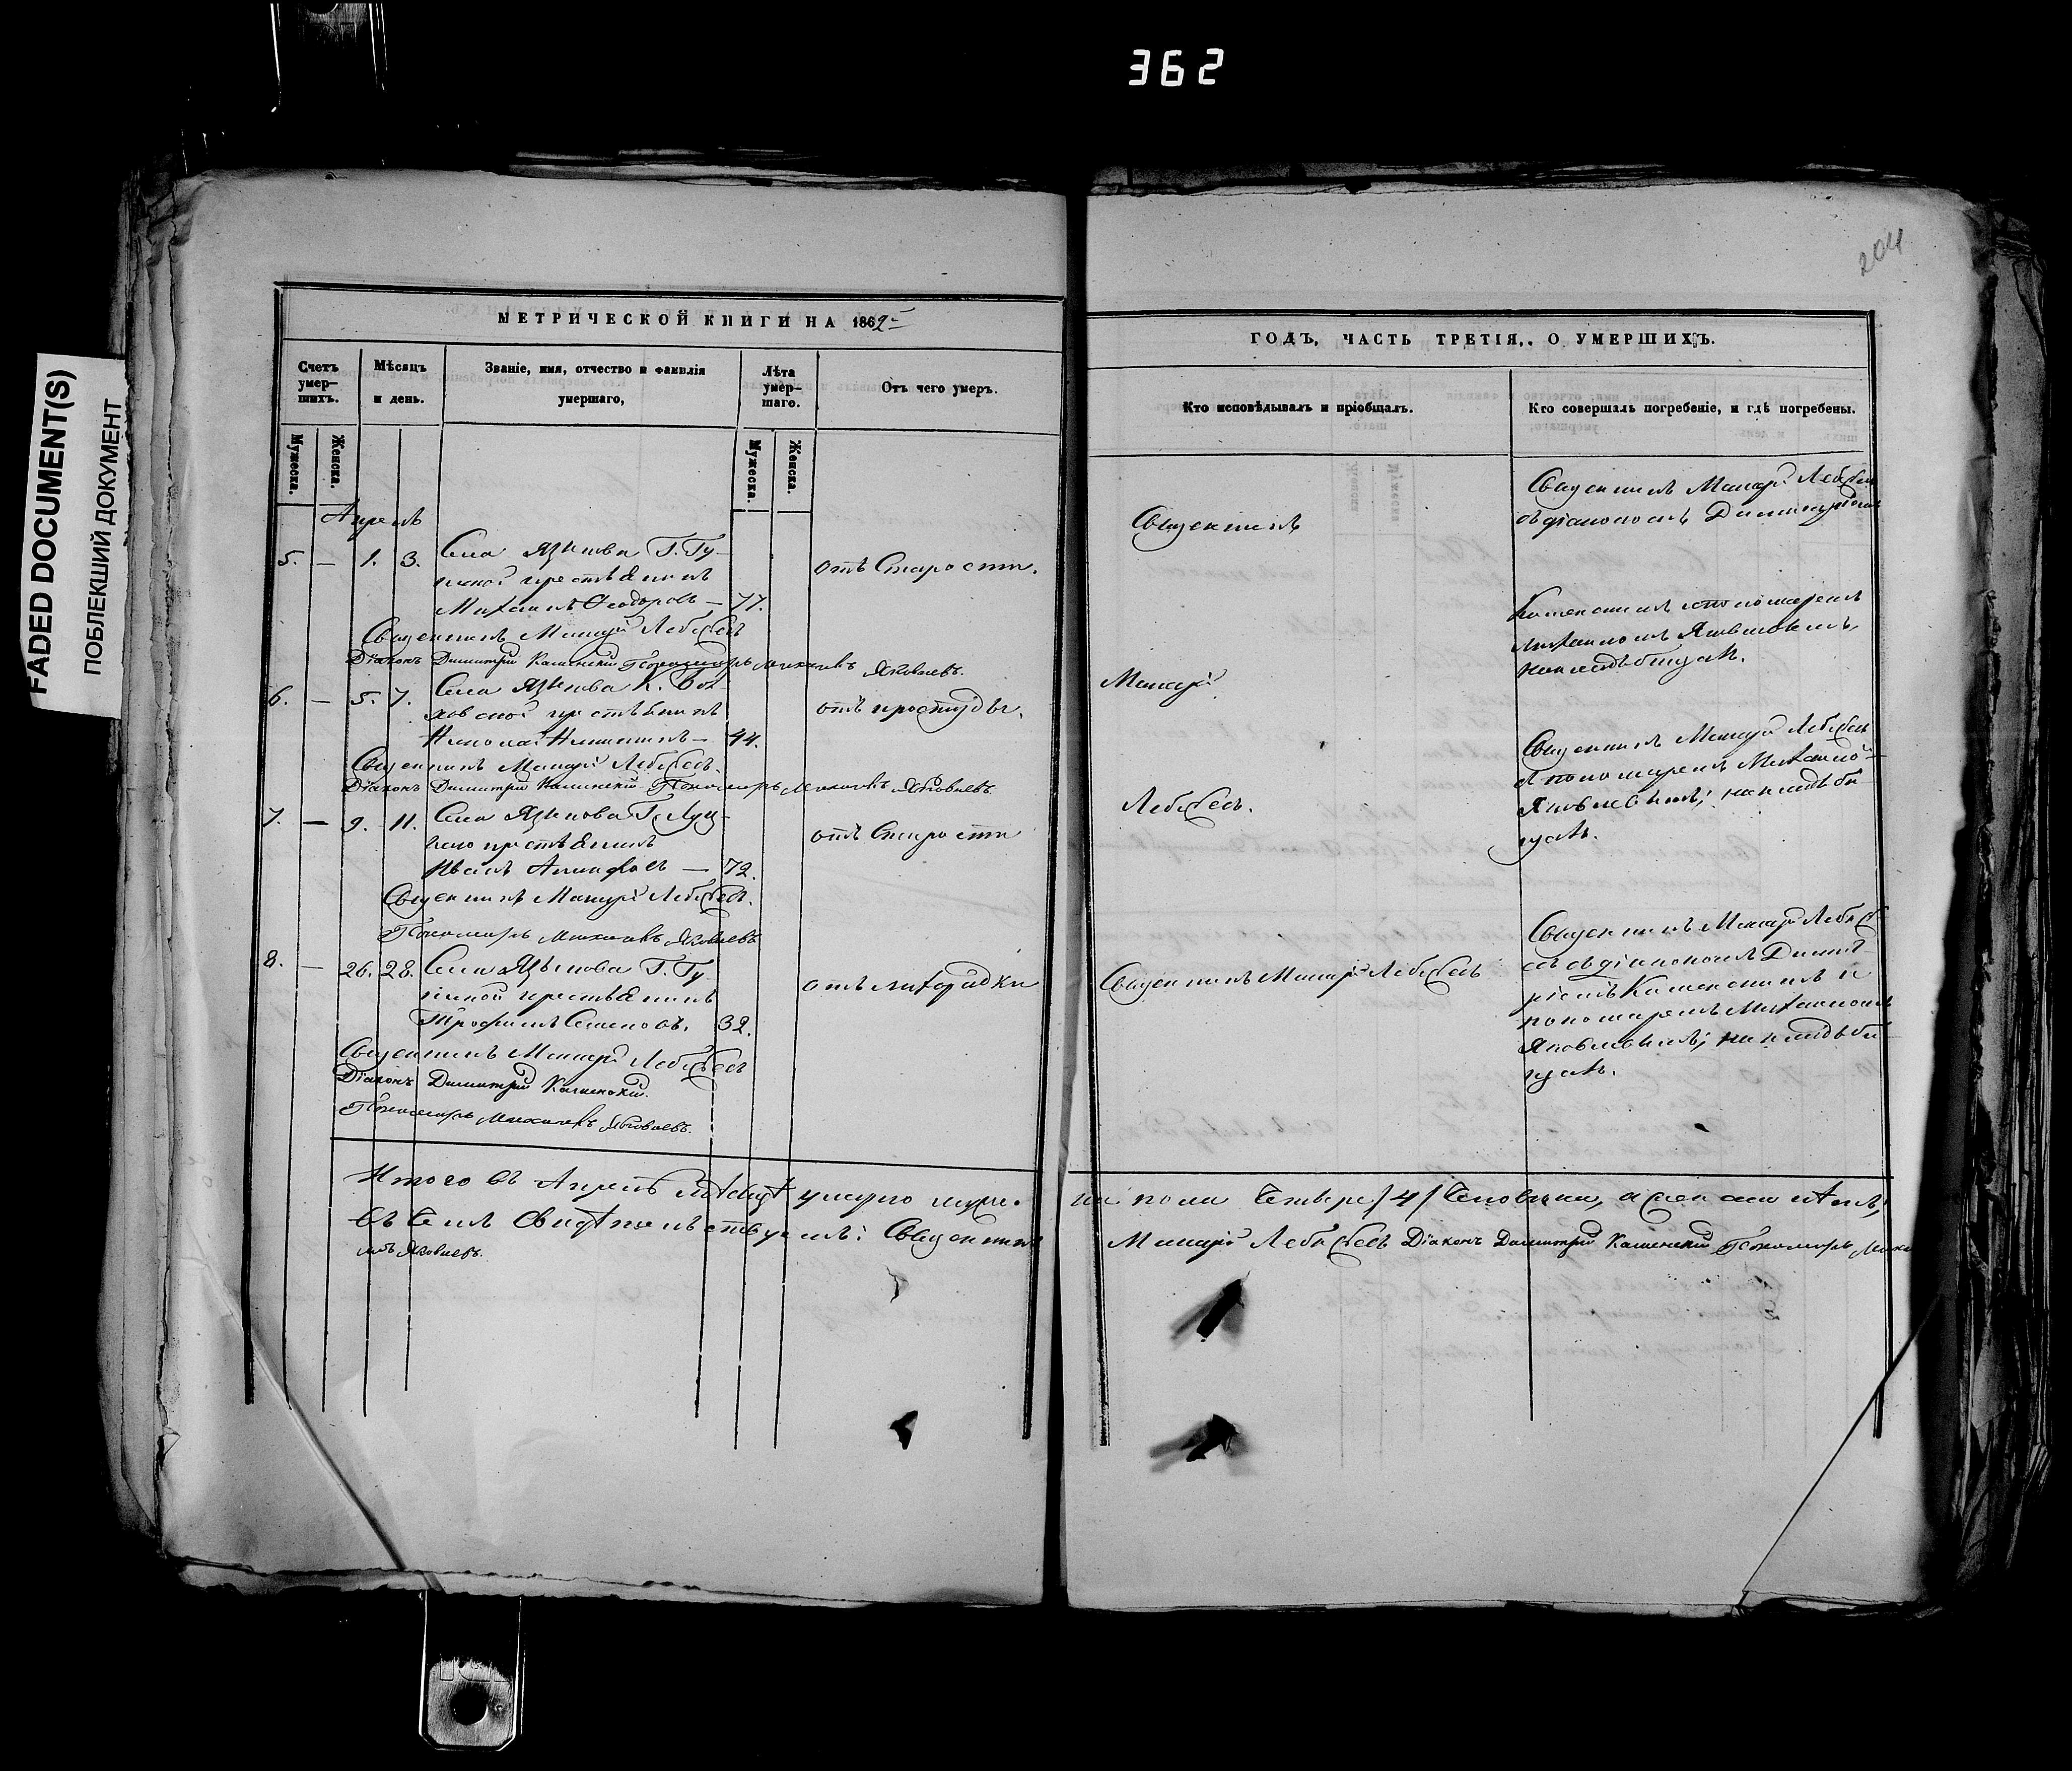 362
204
FADED DOCUMENT(S)
ПОБЛЕКШИЙ ДОКУМЕНТ
МЕТРИЧЕСКОЙ КНИГИ НА 1862
Счетъ умер-
шихъ.
Мѣсяцъ
и день.
Званіе, имя, отчество и фамилія
умершаго,
Лѣта
умер-
шаго.
Отъ чего умеръ.
Мужеска.
Женска.
Мужеска.
Женска.
Апрель
5. — 1. 3. Села Языкова Г. Гу-
крестьянинъ
Михаилъ Ѳеодоровъ — 77.
отъ Старости.
Священникъ Макарій Лебедевъ
Діаконъ Димитрій Каменскій Пономарь Михаилъ Яковлевъ.
6. — 5. 7. Села Языкова К.
крестьянинъ
Николай Никитинъ — 44.
отъ простуды.
Священникъ Макарій Лебедевъ.
Діаконъ Димитрій Каменскій Пономарь Михаилъ Яковлевъ.
7. — 9. 11. Села Языкова Г.
крестьянинъ
Иванъ — 72.
отъ Старости
Священникъ Макарій Лебедевъ.
Пономарь Михаилъ Яковлевъ
8. — 26. 28. Села Языкова Г. Гу-
крестьянинъ
Трофимъ Семеновъ. 32.
отъ лихорадки
Священникъ Макарій Лебедевъ
Діаконъ Димитрій Каменскій.
Пономарь Михаилъ Яковлевъ.
Итого въ Апрелѣ мѣсяцѣ умерло муже-
въ чемъ свидѣтельствуемъ: Священникъ
илъ Яковлевъ.
ГОДЪ, ЧАСТЬ ТРЕТІЯ, О УМЕРШИХЪ.
Кто исповѣдывалъ и пріобщалъ.
Кто совершалъ погребеніе, и гдѣ погребены.
Священникъ
Макарій
Лебедевъ.
Священникъ Макарій Лебедевъ
Священникъ Макарій Лебедевъ
съ діакономъ Димитріемъ
Каменскимъ пономаремъ
Михаиломъ Яковлевымъ,
на кладбищѣ.
Священникъ Макарій Лебедевъ
съ пономаремъ Михаиломъ
Яковлевымъ; на кладби
щѣ.
Священникъ Макарій Лебед
евъ съ діакономъ Димит-
ріемъ Каменскимъ и
пономаремъ Михаиломъ
Яковлевымъ; на кладби
щѣ.
ска пола Четыре /4/ Человека, а женска нѣтъ,
Макарій Лебедевъ Діаконъ Димитрій Каменскій Пономарь Миха